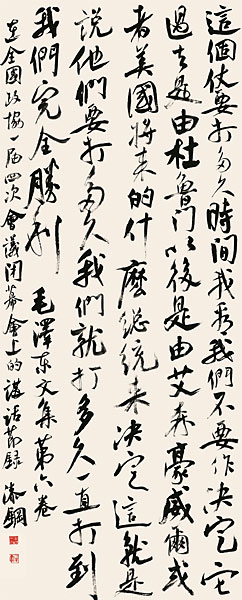 這個仗要打多久時間我看我們不要作決定它
過去是由杜魯門以後是由艾森豪威爾或
者美國將來的什麼總統來決定這就是
說他們要打多久我們就打多久一直打到
我們完全勝利 毛澤東文集第六卷
在全國政協一屆四次會議閉幕會上的講話節錄